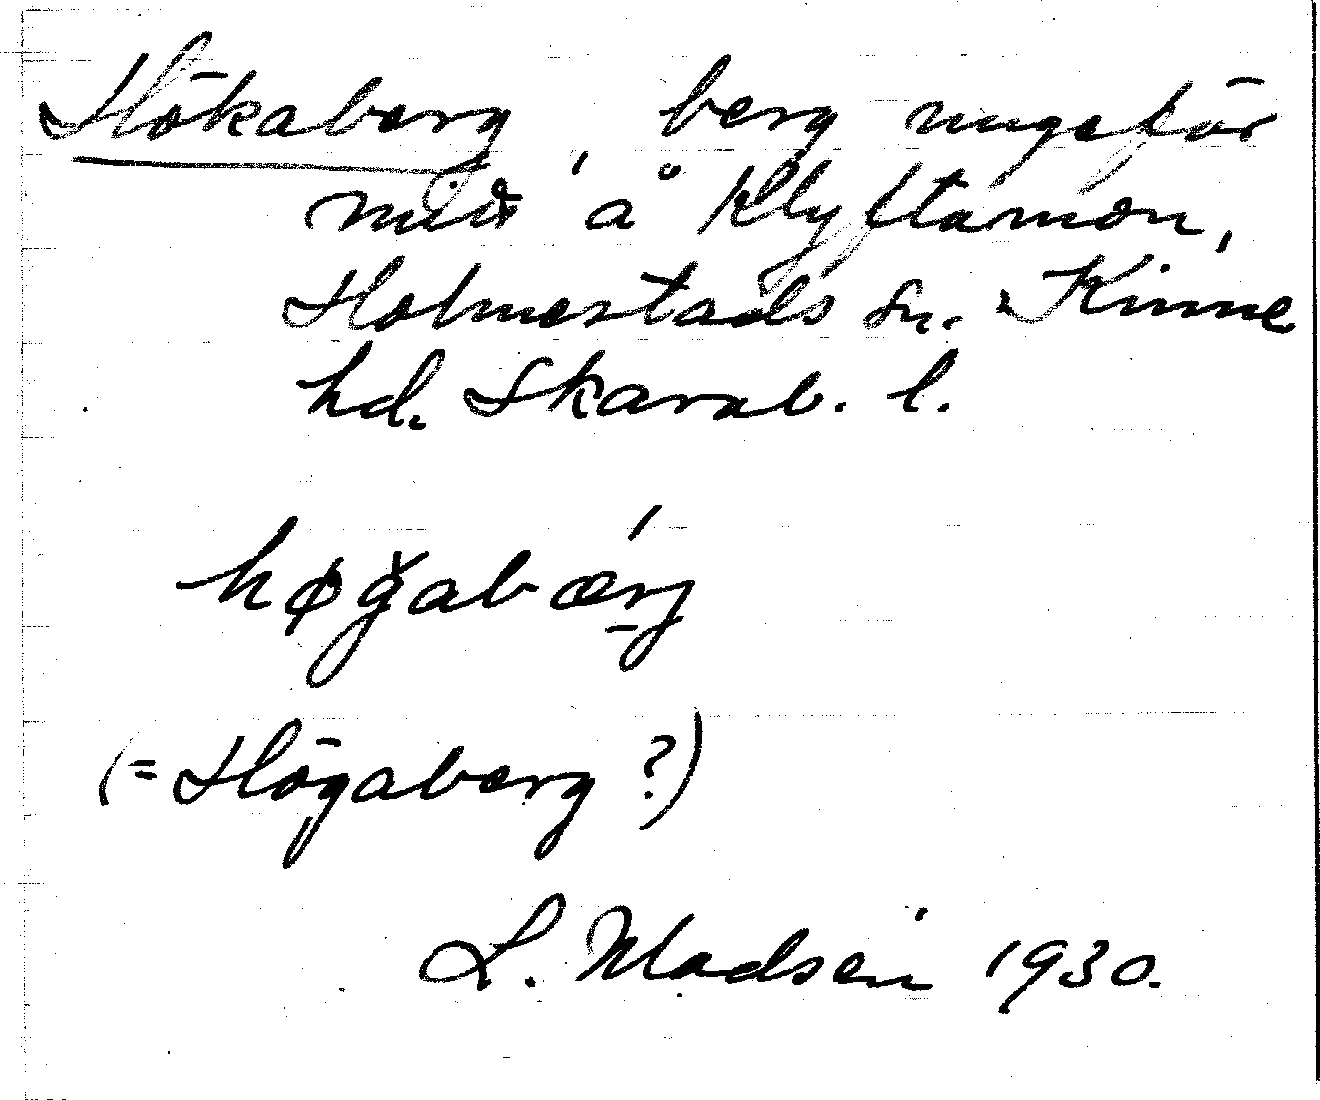 Hökaberg, berg ungefär
mitt å Klyftamon,
Holmestads sn. Kinne
hd. Skarab. l.
høǧabærg
(= Högaberg ?)
L. Madsén 1930.